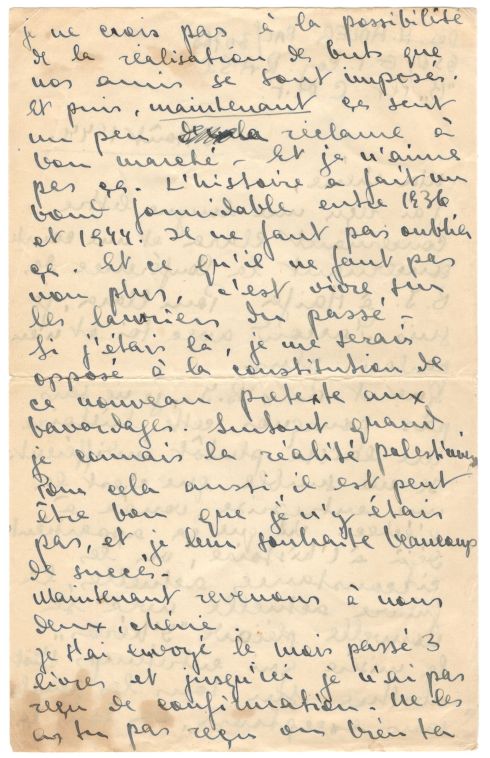 je ne crois pas à la possibilité
de la réalisation de buts que
nos amis se sont imposés.
Et puis, maintenant ça sent
un peu la réclame à
bon marché - Et je n'aime
pas ça. L'histoire a fait un
bond formidable entre 1936
et 1944. Il ne faut pas oublier
ça. Et ce qu'il ne faut pas
non plus, c'est vivre sur
les lauriers du passé -
Si j'étais là, je me serais
opposé à la constitution de
ce nouveau pretexte aux
bavardages. Surtout quand
je connais la réalité palestinienne
Pour cela aussi il est peut
être bon que je n'y étais
pas, et je leur souhaite beaucoup
de succès -
Maintenant revenons à nous
deux, chérie.
Je t'ai envoyé le mois passé 3
livres et jusqu'ici je n'ai pas
reçu de confirmation. Ne les
as tu pas reçu ou bien ta